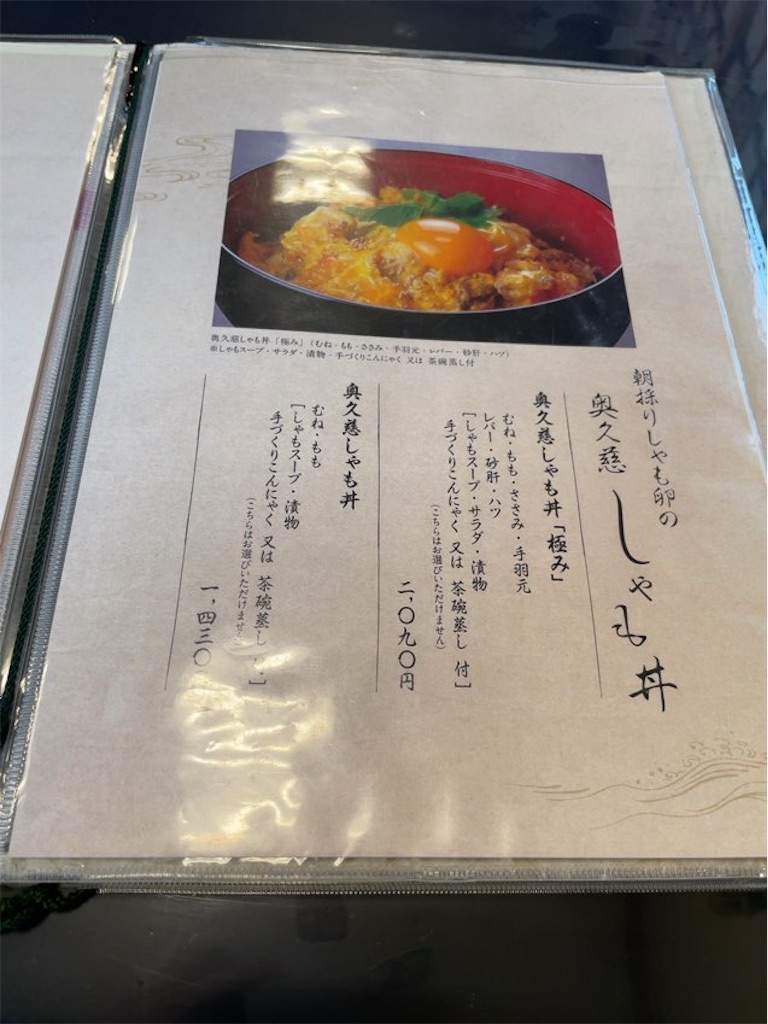 奥久慈しゃも丼「極み」(むね・もも・ささみ・手羽元・レバー・砂肝・ハツ)
※しゃもスープ・サラダ・漬物・手づくりこんにゃく 又は 茶碗蒸し付
朝採りしゃも卵の
奥久慈 しゃも丼
奥久慈しゃも丼「極み」
むね・もも・ささみ・手羽元
レバー・砂肝・ハツ
[しゃもスープ・サラダ・漬物
手づくりこんにゃく 又は 茶碗蒸し 付]
(こちらはお選びいただけません)
二,〇九〇円
奥久慈しゃも丼
むね・もも
[しゃもスープ・漬物
手づくりこんにゃく 又は 茶碗蒸し ]
(こちらはお選びいただけません)
一,四三〇